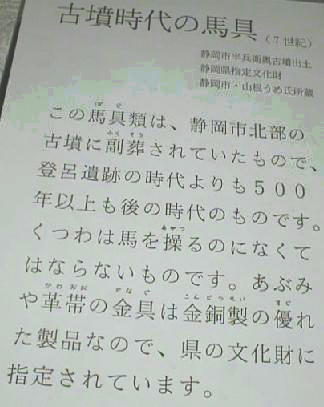 古墳時代の馬具(7世紀)
静岡市半兵衛奥古墳出土
静岡県指定文化財
静岡市・山根うめ氏所蔵
この馬具類は、静岡市北部の
古墳に副葬されていたもので、
登呂遺跡の時代よりも500
年以上も後の時代のものです。
くつわは馬を操るのになくて
はならないものです。あぶみ
や革帯の金具は金銅製の優れ
た製品なので、県の文化財に
指定されています。